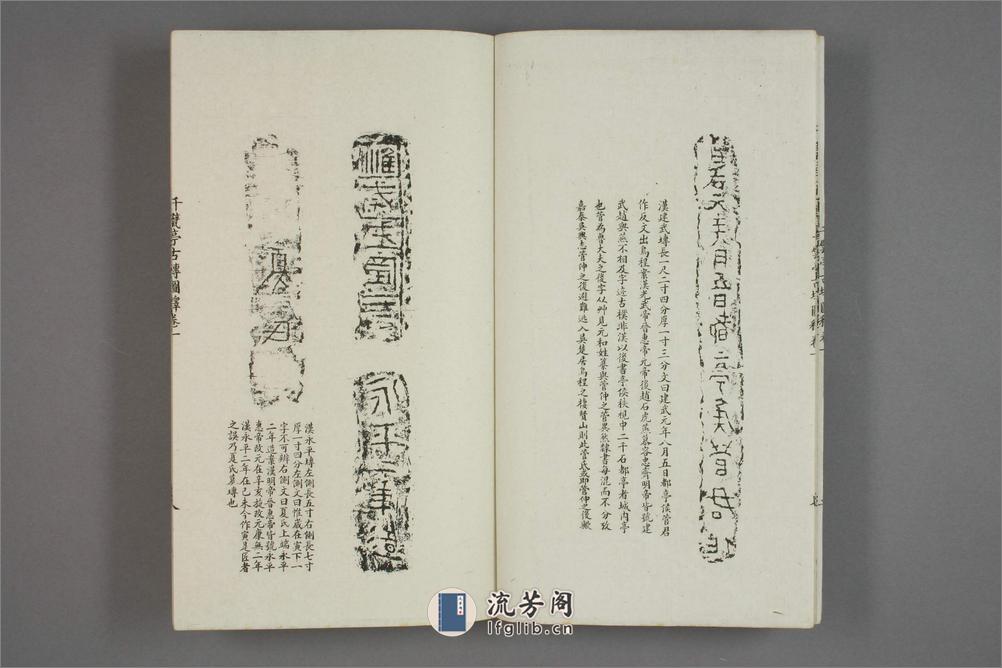 漢建武塼長一尺二寸四分厚一寸三分文曰建武元年八月五日都亭侯管君
作反文出烏程案漢光武帝晉惠帝元帝後趙石虎燕慕容忠齊明帝皆號建
武趙與燕不相及字迹古樸非漢以後書亭侯秩視中二千石都亭者城內亭
也管為魯大夫之後字从艸見元和姓纂與管仲之管異然隸書每混而不分攷
嘉泰吳興志管仲之後避難適入吳楚居烏程之棲賢山則此管氏或即管仲之後歟
惟歲在寅
永平二年造
夏氏
漢永平塼左側長五寸右側長七寸
厚一寸四分左側文曰惟歲在寅下一
字不可辨右側文曰夏氏上端永平
二年造案漢明帝晉惠帝皆號永平
惠帝改元在辛亥旋改元康無二年
漢永平二年在己未今作寅是匠者
之誤乃夏氏墓塼也
千甓亭古塼圖釋卷一
流芳阁
lfglib.cn